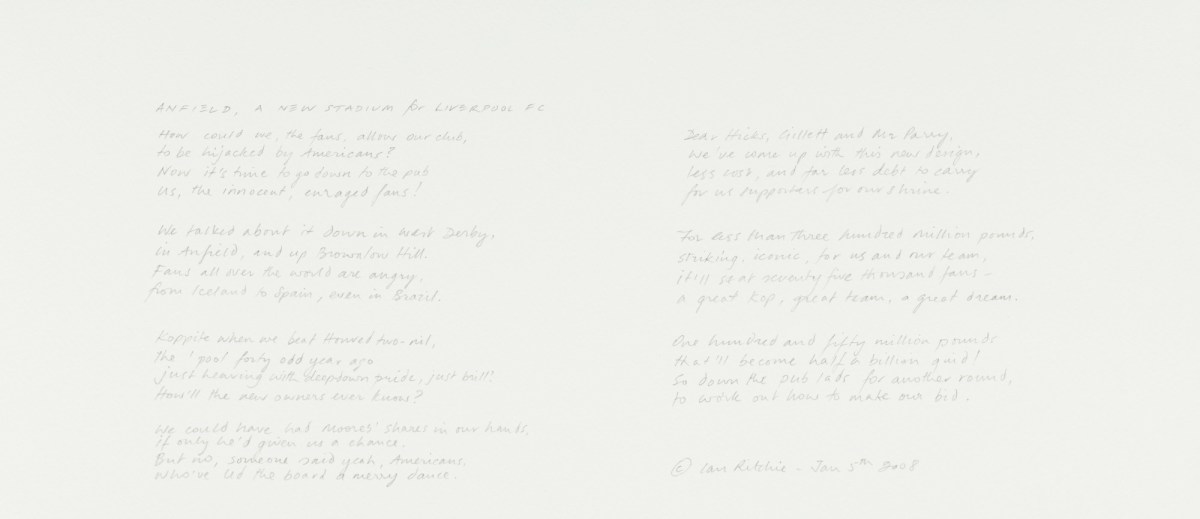 ANFIELD, A NEW STADIUM for LIVERPOOL FC
How could we, the fans, allow our club,
to be hijacked by Americans?
Now it's time to go down to the pub
Us, the innocent, enraged fans!
We talked about it down in West Derby,
in Anfield, and up Brownlow Hill.
Fans all over the world are angry,
from Iceland to Spain, even in Brazil.
Koppite when we beat Honved two-nil,
The 'pool forty odd year ago
just heaving with deepdown pride, just brill!
How'll the new owners ever know?
We could have had Moores' shares in our hands,
if only he'd given us a chance.
But no, someone said yeah, Americans,
who've led the board a merry dance.
Dear Hicks, Gillett and Mr Parry,
we've come up with this new design,
less cost, and far less debt to carry
for us supporters for our shrine.
For less than three hundred million pounds,
striking, iconic, for us and our team,
it'll seat seventy five thousand fans –
a great Kop, great team, a great dream.
One hundred and fifty million pounds
that'll become half a billion quid!
So down the pub lads for another round,
to work out how to make our bid.
© Ian Ritchie - Jan 5th 2008